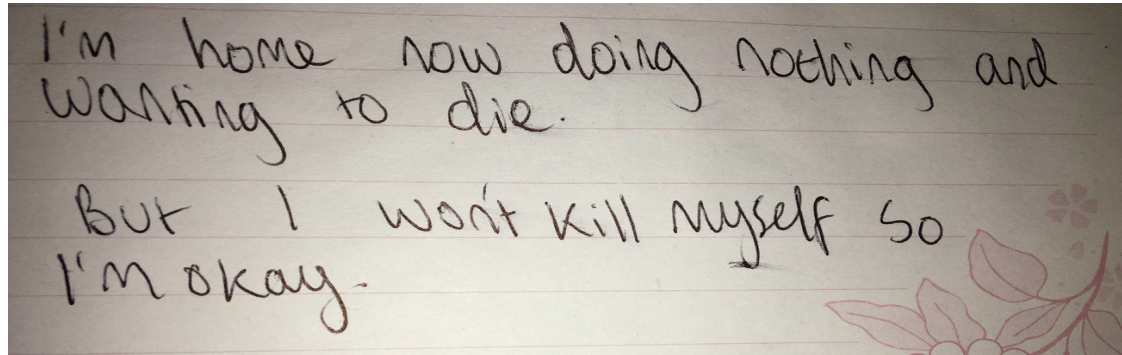 I'm home now doing nothing and
wanting to die.
But I won't kill myself so
I'm okay.